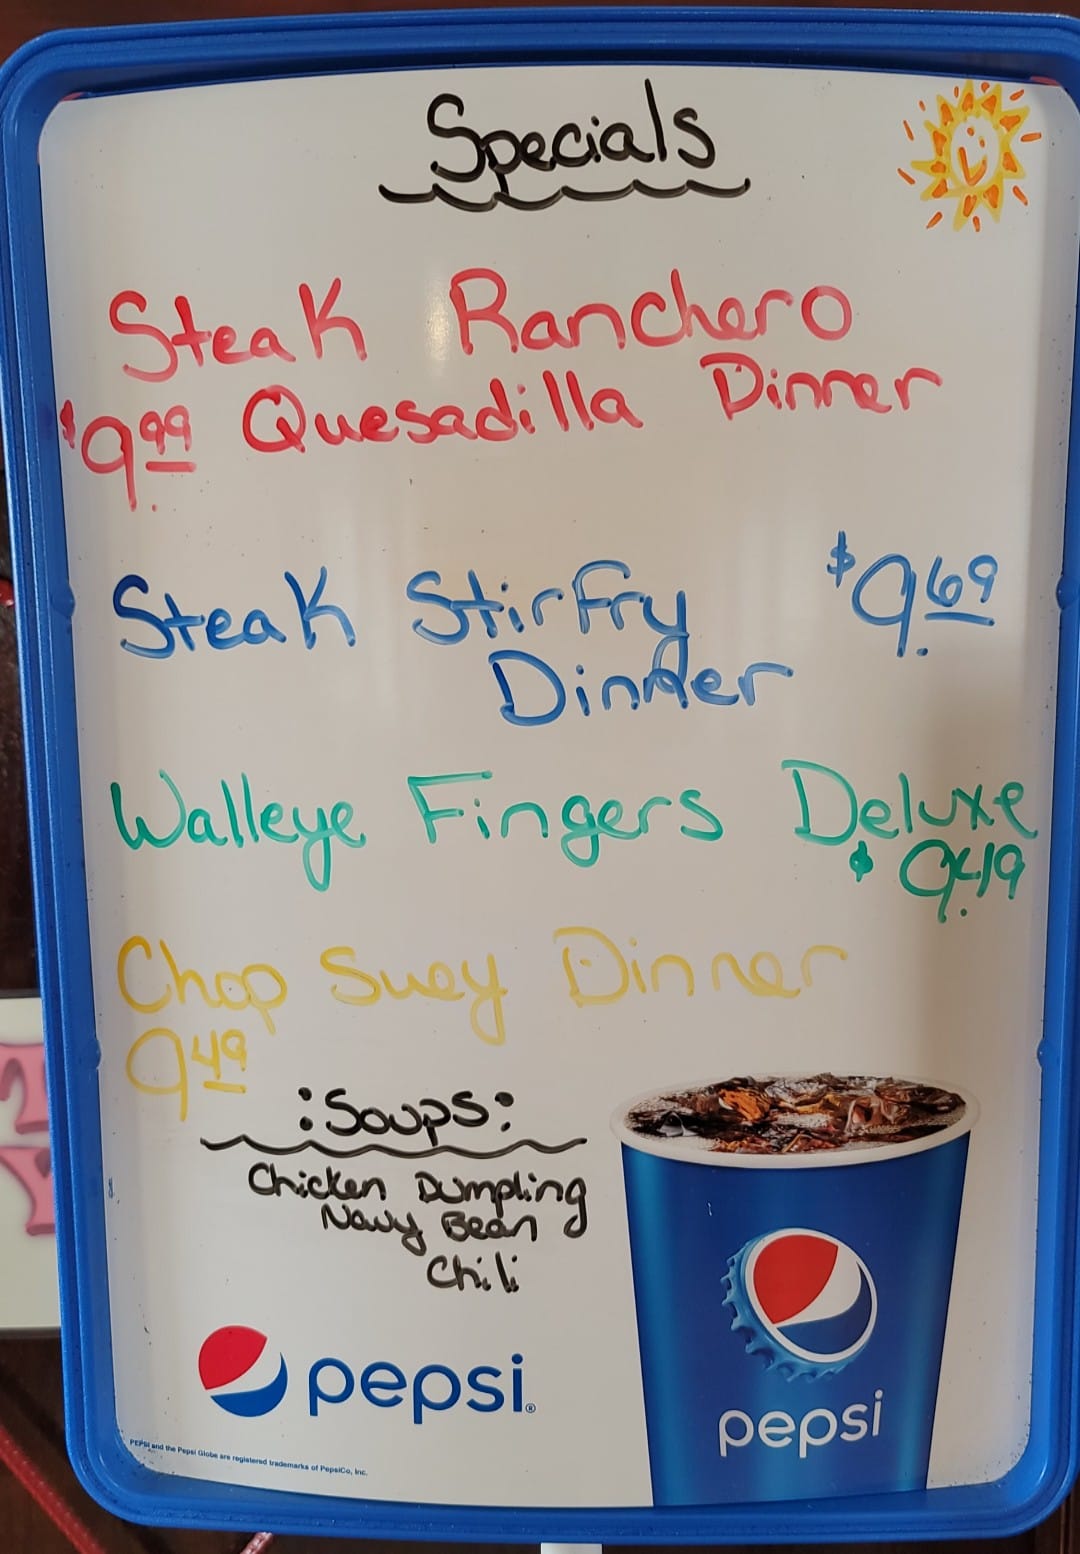 Specials
Steak Ranchero
$9.99 Quesadilla Dinner
Steak Stirfry $9.69
Dinner
Walleye Fingers Deluxe
$9.49
Chop Suey Dinner
9.49
:Soups:
Chicken Dumpling
Navy Bean
Chili
pepsi®
pepsi
PEPSI and the Pepsi Globe are registered trademarks of PepsiCo, Inc.